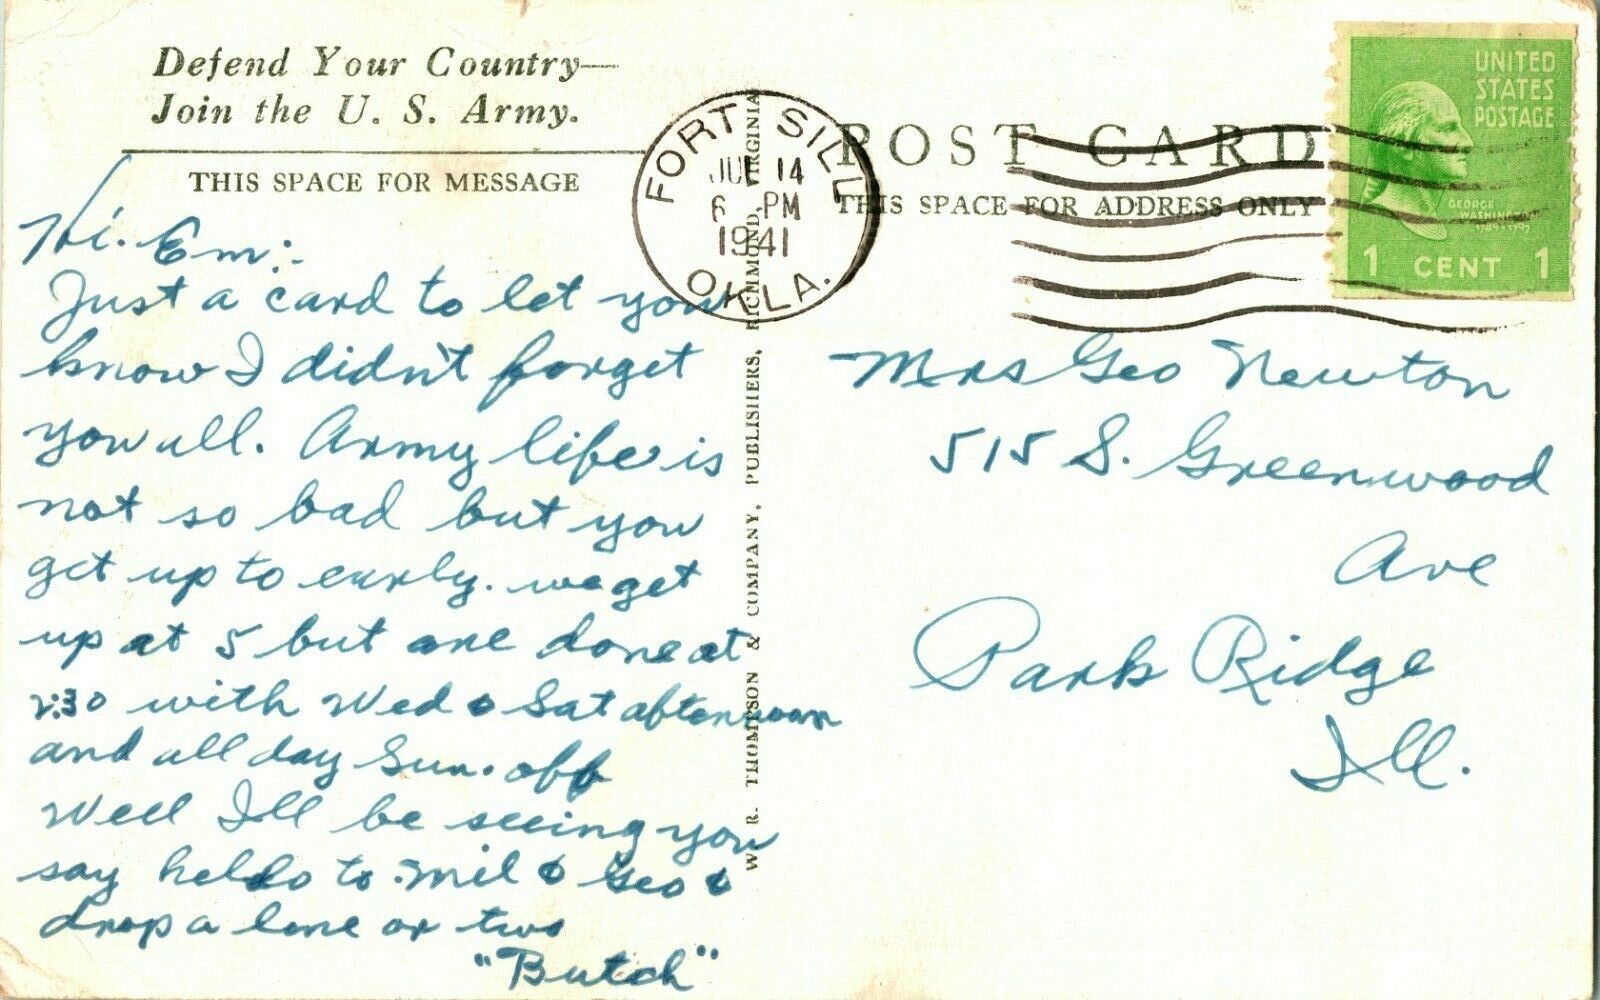 Defend Your Country—
Join the U. S. Army.
THIS SPACE FOR MESSAGE
Hi. Em:-
Just a card to let you
know I didn't forget
you all. Army life is
not so bad but you
get up to early. we get
up at 5 but are done at
2:30 with Wed & Sat afternoon
and all day Sun. off
Well I'll be seeing you
say hello to Mil & Geo &
drop a line or two
"Butch"
W. R. THOMPSON & COMPANY, PUBLISHERS, RICHMOND, VIRGINIA
FORT SILL
JUL 14
6 PM
1941
OKLA.
POST CARD
THIS SPACE FOR ADDRESS ONLY
UNITED
STATES
POSTAGE
GEORGE
WASHINGTON
1789-1797
1 CENT 1
Mrs Geo Newton
515 S. Greenwood
Ave
Park Ridge
Ill.